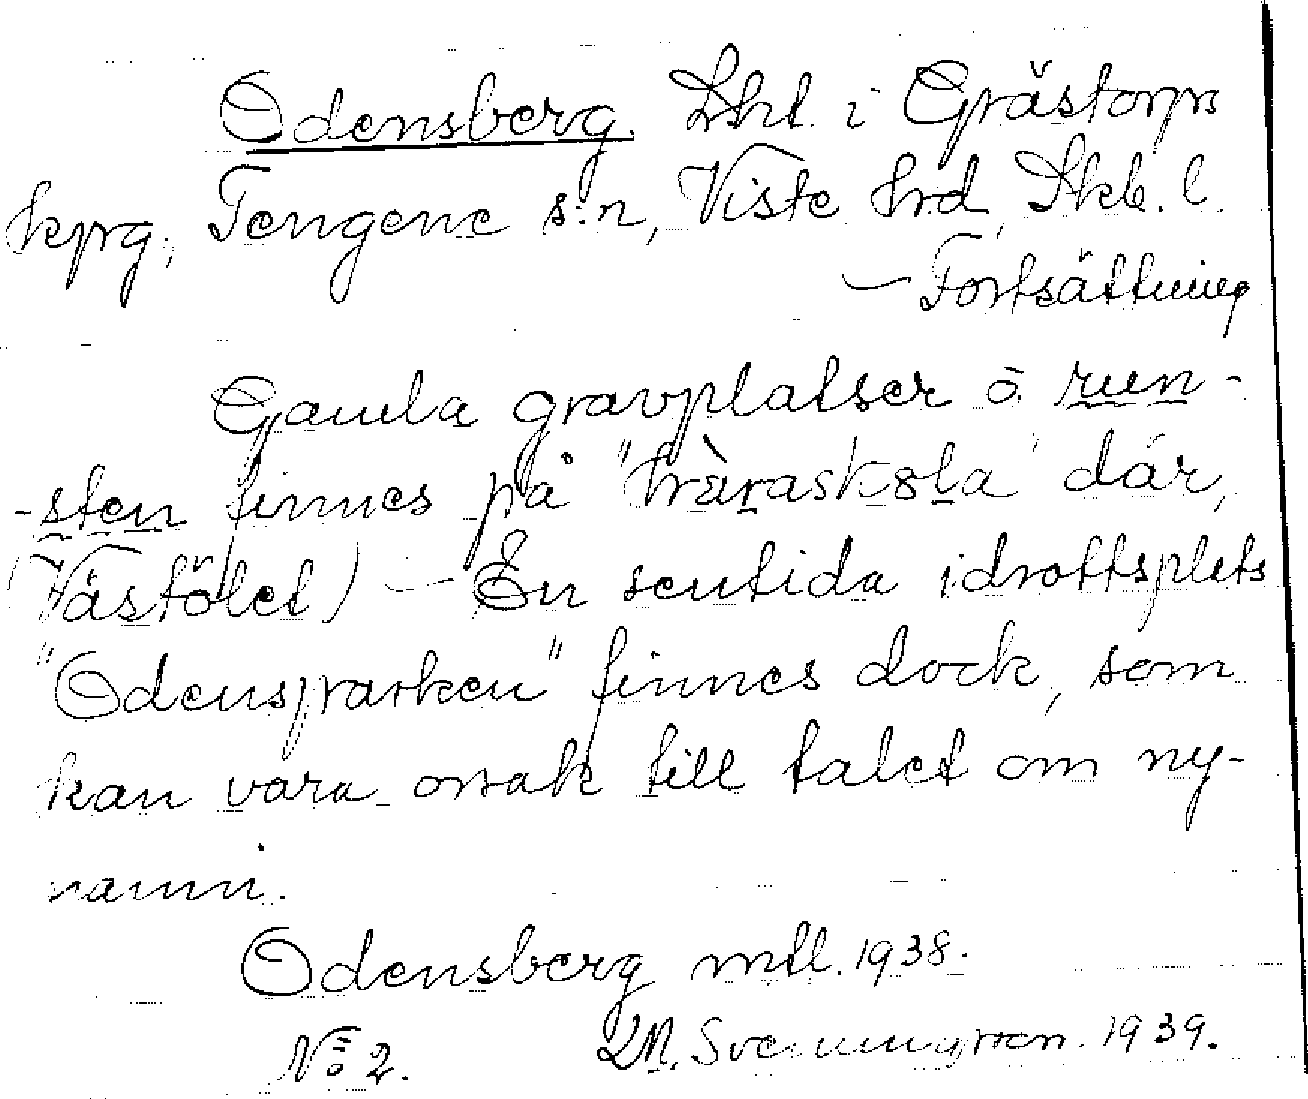 Odensberg. Lht. i Grästorps
kprg, Tengene s:n, Viste hrd, Skb. l.
— Fortsättning
Gamla gravplatser o. run-
-sten finnes på "hràraskola" där,
(Västölet) — En sentida idrottsplats
"Odensparken" finnes dock, som
kan vara orsak till talet om ny-
namn.
Odensberg mtl. 1938.
No 2. LM. Svenungsson. 1939.